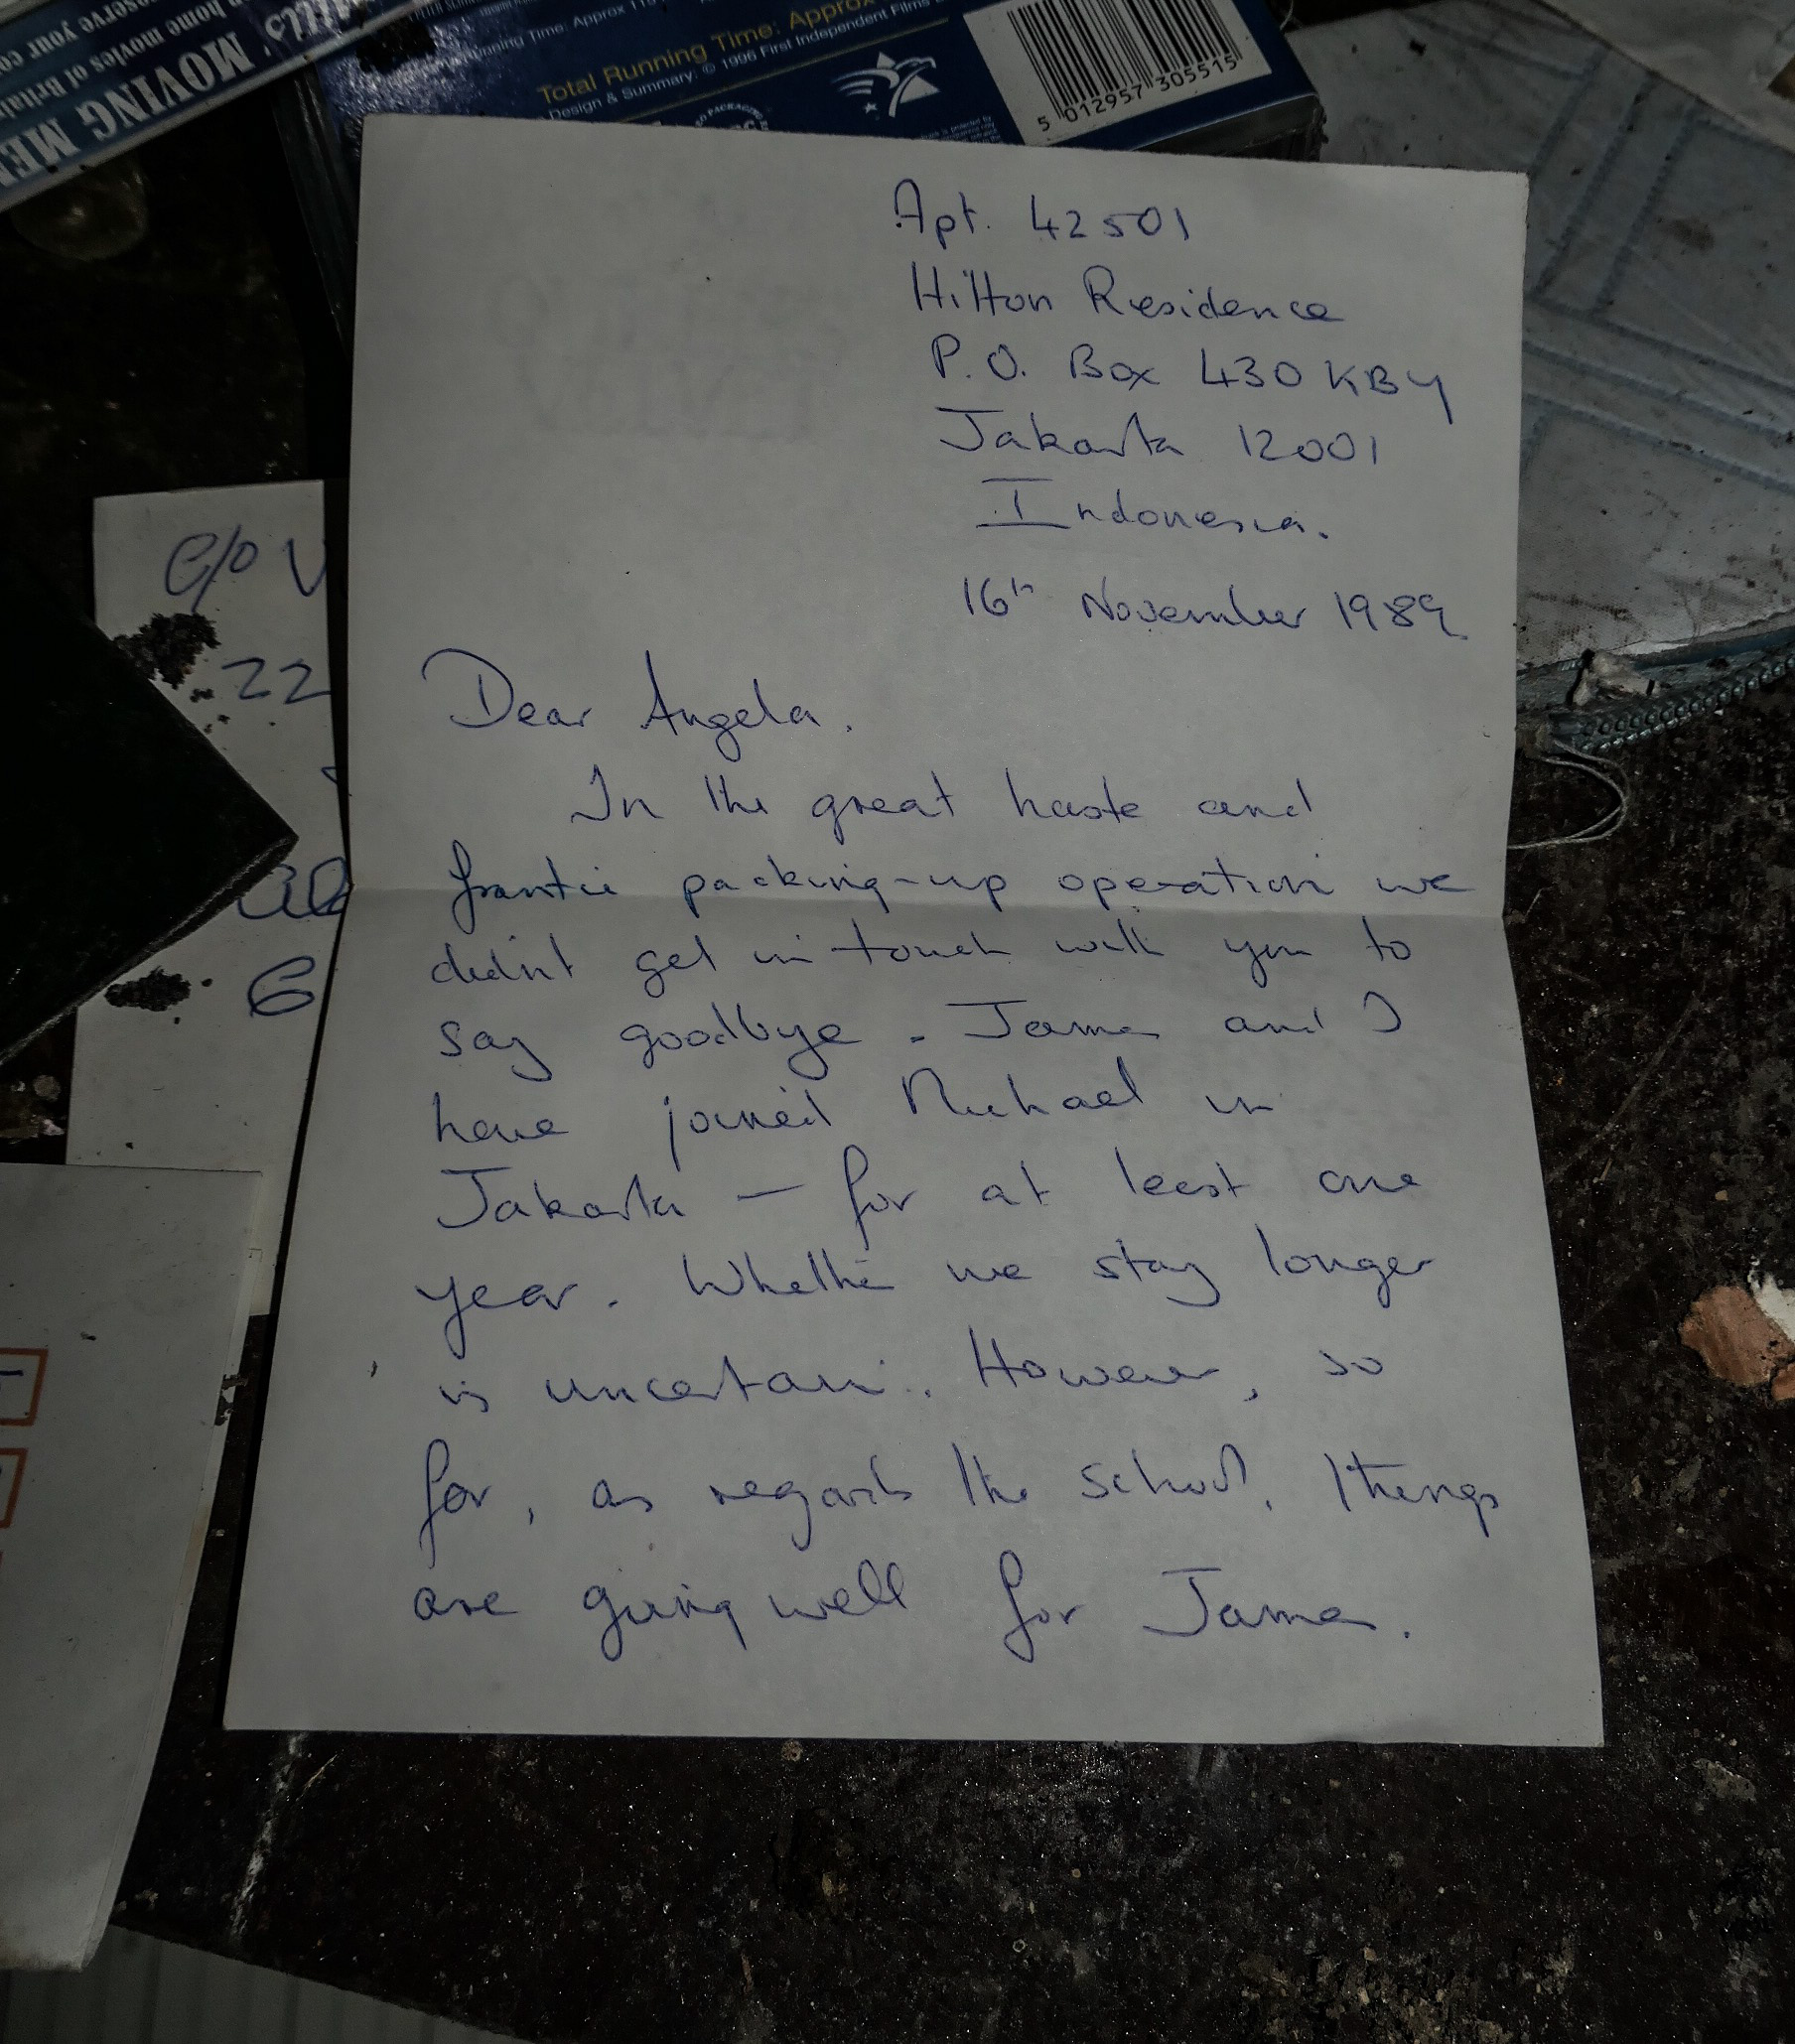 MOVING
n home movies of Britain
Total Running Time: Approx
Design & Summary: © 1996 First Independent Films
5 012957 305515
c/o V
22
6
Apt. 42501
Hilton Residence
P.O. Box 430 KBY
Jakarta 12001
Indonesia.
16th November 1989
Dear Angela.
In the great haste and
frantic packing-up operation we
didn't get in touch with you to
say goodbye. James and I
have joined Michael in
Jakarta — for at least one
year. Whether we stay longer
is uncertain. However, so
far, as regards the school, things
are going well for James.